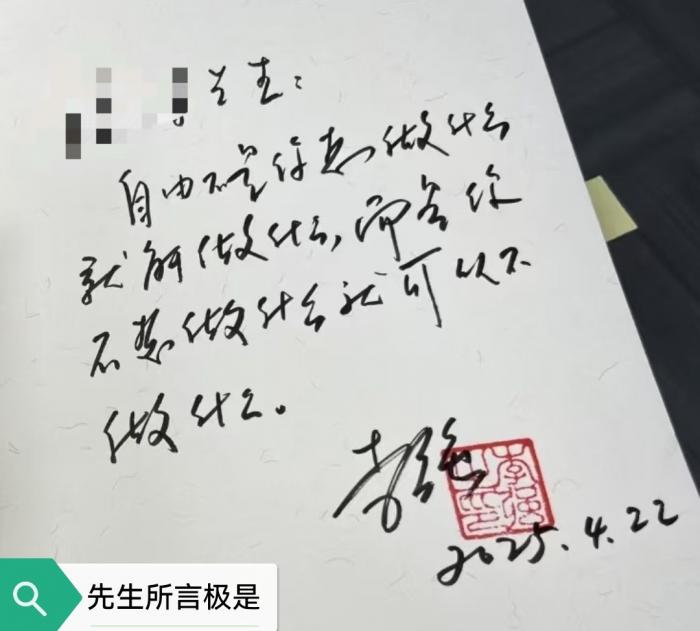 先生：
自由不是你想做什么
就能做什么，而是你
不想做什么就可以不
做什么。
李强
2025.4.22
先生所言极是